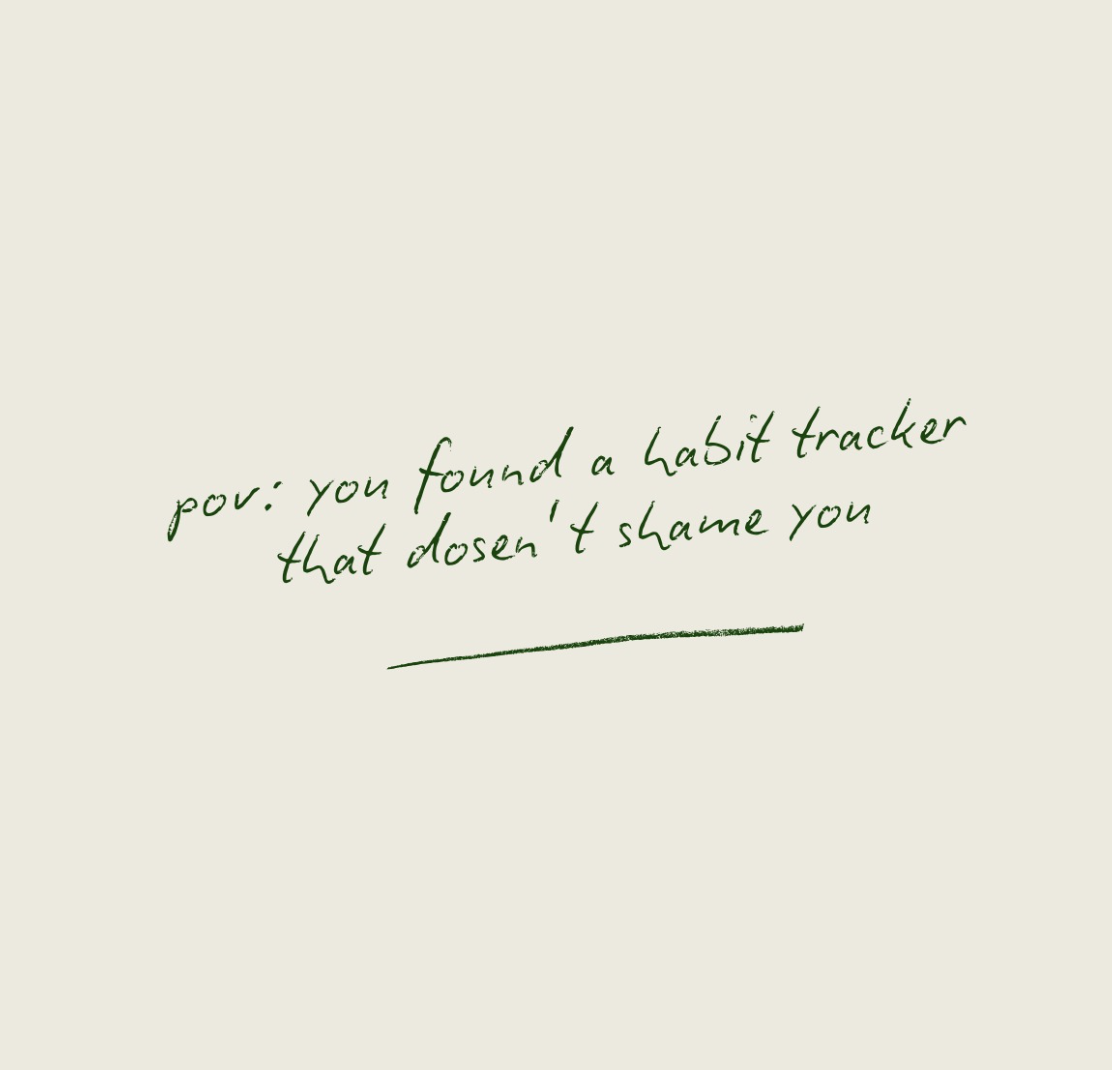 pov: you found a habit tracker
that dosen't shame you